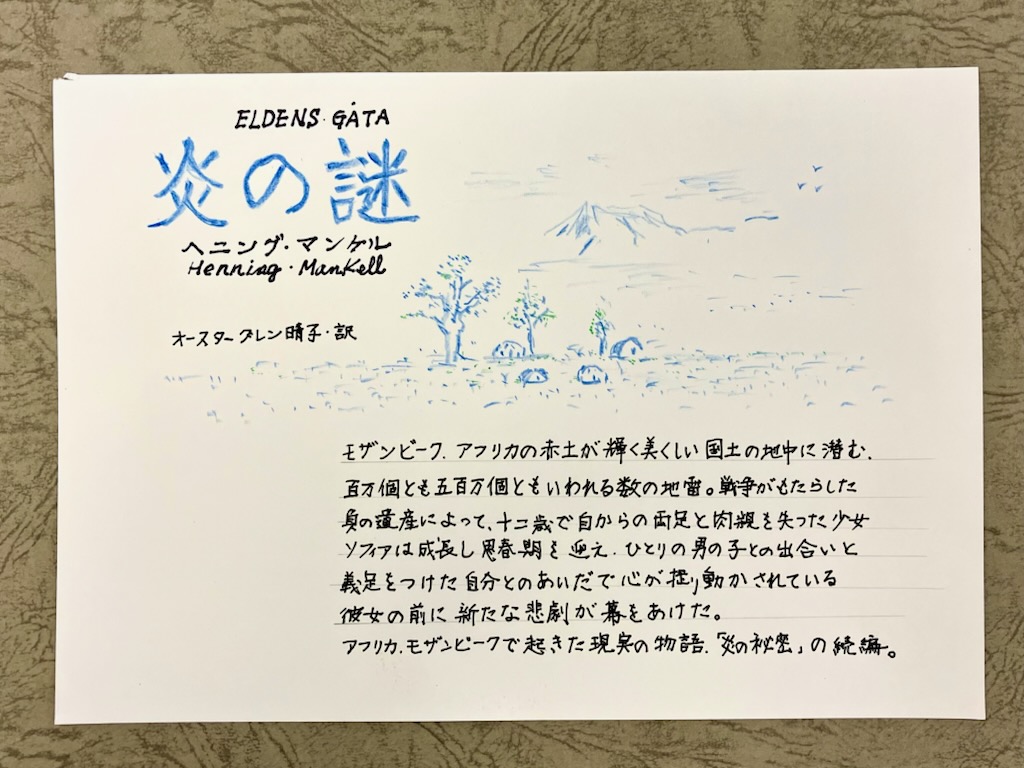 ELDENS・GÅTA
炎の謎
ヘニング・マンケル
Henning・Mankell
オスターグレン晴子・訳
モザンビーク．アフリカの赤土が輝く美くしい国土の地中に潜む．
百万個とも五百万個ともいわれる数の地雷。戦争がもたらした
負の遺産によって、十二歳で自からの両足と肉親を失った少女
ソフィアは成長し思春期を迎え．ひとりの男の子との出合いと
義足をつけた自分とのあいだで心が揺り動かされている
彼女の前に新たな悲劇が幕をあけた。
アフリカ．モザンビークで起きた現実の物語．「炎の秘密」の続編。